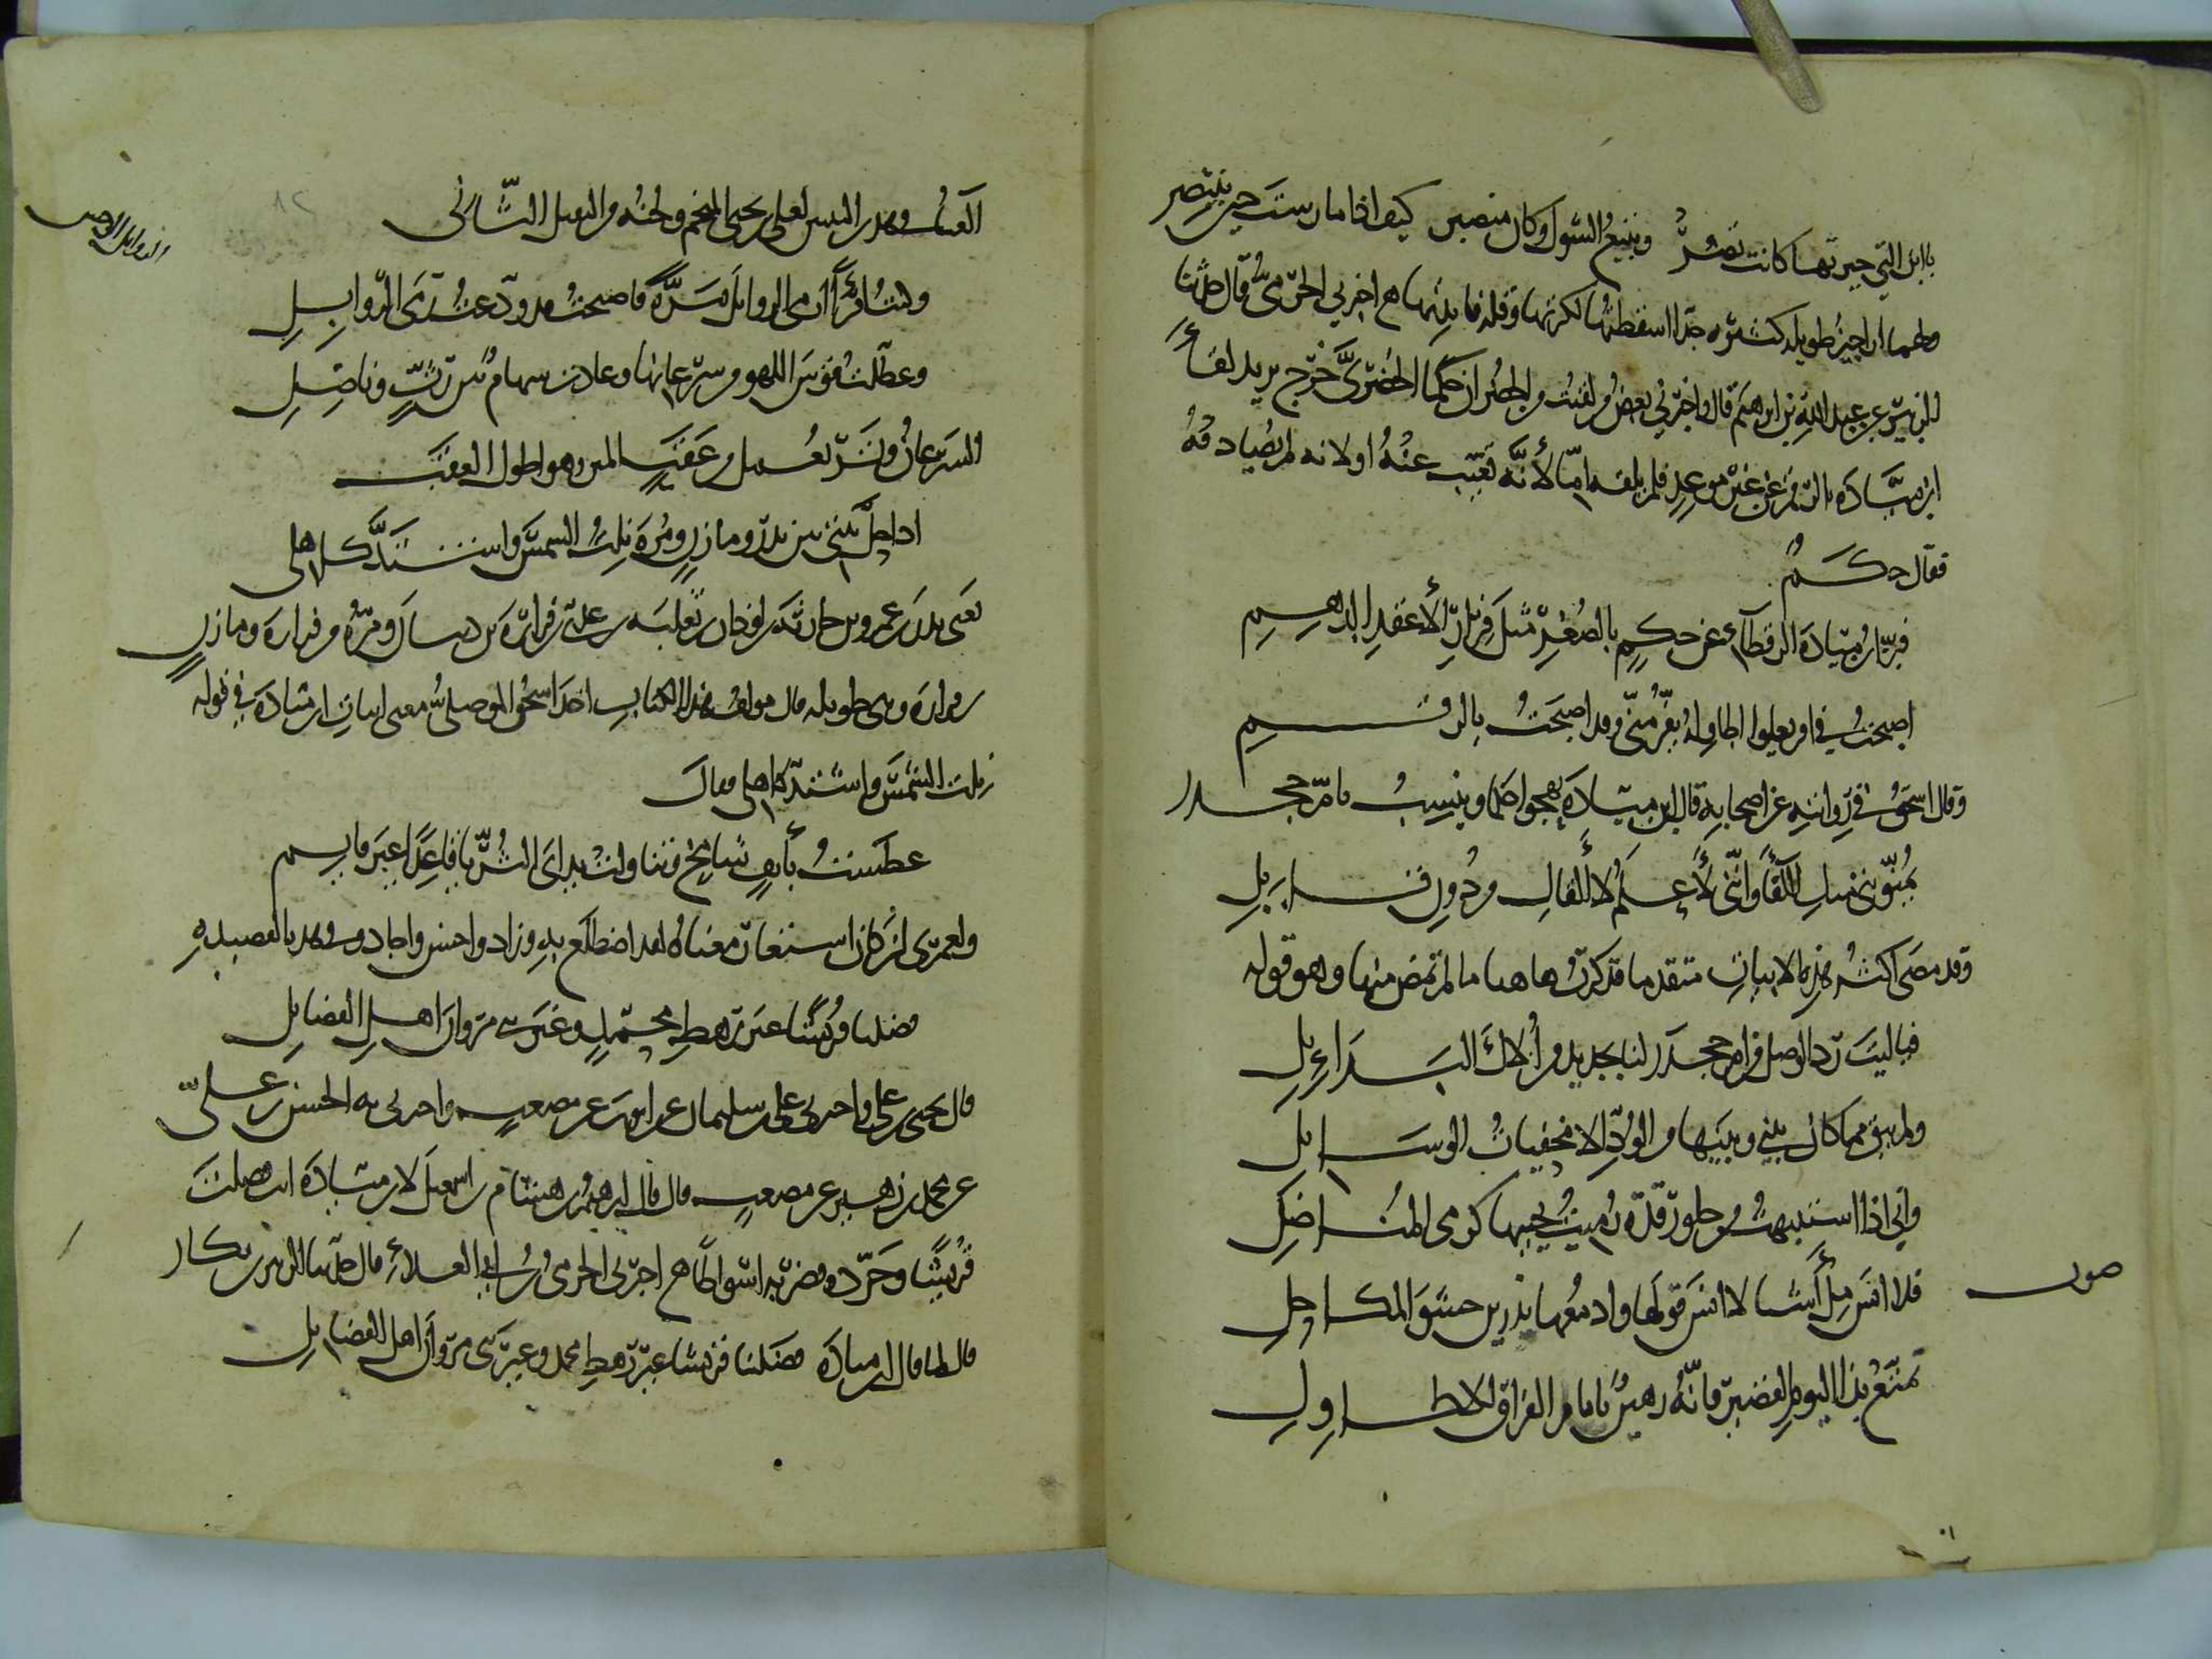 يا ابل التي حيرتها كانت تصر وبنبع الشول وكان منصر كيف اذا مارست حين ينتصر
ولهما اراجيز طويلة كثيرة جدا اسقطتها لكثرتها وقلة فائدتها اخبرني الحرمي قال حدثنا
الزبير عن عبد الله بن ابرهيم قال واخبرني بعض من لقيت من الخضر ان حكما الخضري خرج يريد لقاء
ابن ميادة بالرقم عن غير موعد فلم يلقه اما لأنه تغيب عنه او لانه لم يصادفه
فقال حكم
فر ابن ميادة الرقطاء عن حكم بالصغر مثل فرار الأعقد الدهم
اصبحت في اقر تعلوا اطاوله تفر مني وقد اصبحت بالرقم
وقال اسحق في روايته عن اصحابه قال ابن ميادة يهجو حكما وينسب بام جحدر
يمنونني منك اللقاء وانني لأعلم لا ألقاك من دون قابل
وقد مضى اكثر هذه الابيات متقدما فذكرت هاهنا ما لم يمض منها وهو قوله
فيا ليت رث الوصل من ام جحدر لنا بجديد من أولاك البدائل
ولم يبق مما كان بيني وبينها من الود الا مخفيات الوسائل
واني اذا استنبهت من حلو رقدة رميت بحبيها كرمي المناضل
صوت
فلا انس مل أشيا لا انس قولها وادمعها يذرين حشو المكاحل
تمتع بذا اليوم القصير فانه رهين بايام الفراق الاطاول
الغناء في هذين البيتين لعلي بن يحيى المنجم ولحنه من الثقيل الثاني
وكنت امرأ ارمي الزوائل مرة فاصبحت قد ودعت رمي الزوائل
وعطلت قوس اللهو من سرعانها وعادت سهامي بين رث وناصل
السرعان وتر يعمل من عقب المتن وهو اطول العقب
اذا حل بيتي بين بدر ومازن ومرة نلت الشمس واشتد كاهلي
يعني بدر بن عمرو بن جوية بن لوذان بن ثعلبة بن عدي بن فزارة بن ذبيان ومرة بن فزارة ومازن
بن فزارة وهي طويلة قال مؤلف هذا الكتاب اخذ اسحق الموصلي معنى ابيات ابن ميادة في قوله
نلت الشمس واشتد كاهلي فقال
عطست بأنف شامخ وتناولت يداي الثريا قاعدا غير قايم
ولعمري لئن كان استعار معناه لقد اضطلع به وزاد واحسن واجاد وفي هذه القصيدة
فضلنا قريشا غير رهط محمد وغير بني مروان اهل الفضايل
قال يحيى بن علي واخبرني علي بن سليمان عن اخيه عن مصعب واخبرني به الحسن بن علي
عن محمد بن زهير عن مصعب قال قال ابرهيم بن هشام بن اسمعيل لابن ميادة انت فضلت
قريشا وجرده فضربه اسواطا اخبرني الحرمي بن ابي العلاء قال حدثنا الزبير بن بكار
قال لما قال ابن ميادة فضلنا قريشا غير رهط محمد وغير بني مروان اهل الفضايل